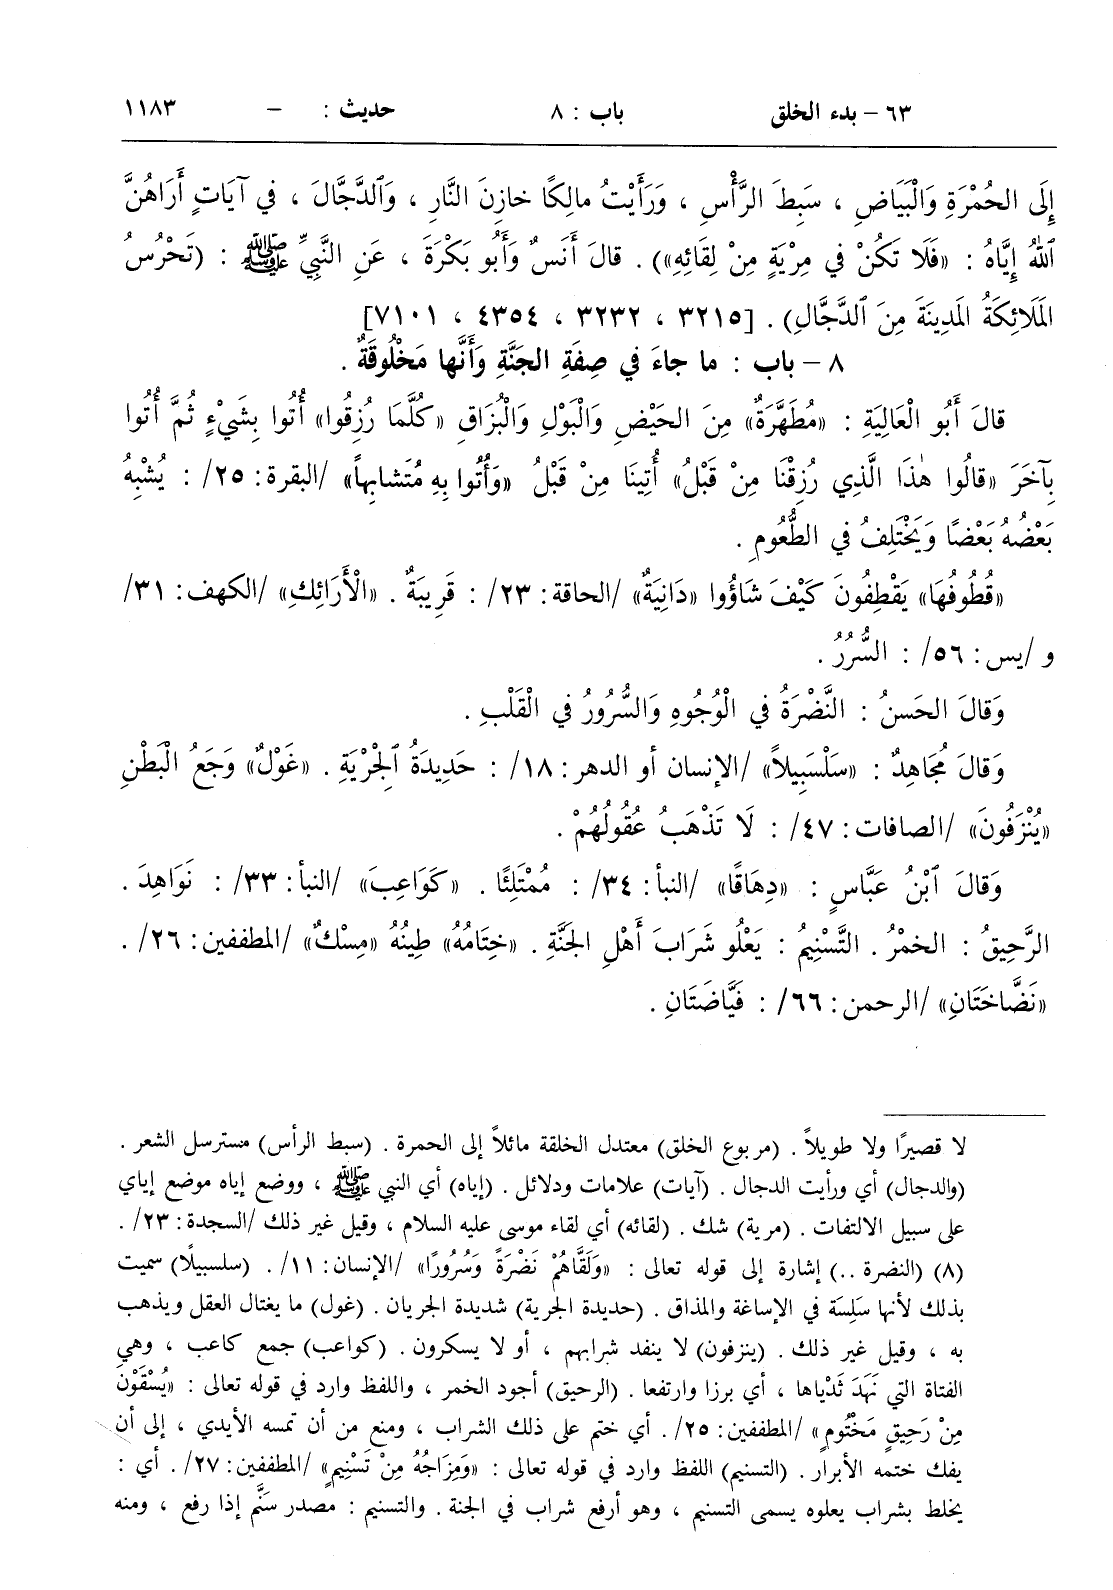 ٦٣ – بدء الخلق باب : ٨ حديث : – ١١٨٣
إِلَى الحُمْرَةِ وَالْبَيَاضِ ، سَبِطَ الرَّأْسِ ، وَرَأَيْتُ مالِكًا خازِنَ النَّارِ ، وَٱلدَّجَّالَ ، في آيَاتٍ أَرَاهُنَّ
ٱللهُ إِيَّاهُ : «فَلَا تَكُنْ في مِرْيَةٍ مِنْ لِقَائِهِ») . قالَ أَنَسٌ وَأَبُو بَكْرَةَ ، عَنِ النَّبِيِّ ﷺ : (تَحْرُسُ
المَلَائِكَةُ المَدِينَةَ مِنَ ٱلدَّجَّالِ) . [٣٢١٥ ، ٣٢٣٢ ، ٤٣٥٤ ، ٧١٠١]
٨ – باب : ما جاءَ في صِفَةِ الجَنَّةِ وَأَنَّها مَخْلُوقَةٌ .
قالَ أَبُو الْعَالِيَةِ : «مُطَهَّرَةٌ» مِنَ الحَيْضِ وَالْبَوْلِ وَالْبُزَاقِ «كُلَّمَا رُزِقُوا» أُتُوا بِشَيْءٍ ثُمَّ أُتُوا
بِآخَرَ «قالُوا هٰذَا الَّذِي رُزِقْنَا مِنْ قَبْلُ» أُتِينَا مِنْ قَبْلُ «وَأُتُوا بِهِ مُتَشابِهاً» /البقرة: ٢٥/ : يُشْبِهُ
بَعْضُهُ بَعْضًا وَيَخْتَلِفُ في الطُّعُومِ .
«قُطُوفُهَا» يَقْطِفُونَ كَيْفَ شَاؤُوا «دَانِيَةٌ» /الحاقة: ٢٣/ : قَرِيبَةٌ . «الْأَرَائِكِ» /الكهف: ٣١/
و /يس: ٥٦/ : السُّرُرُ .
وَقالَ الحَسَنُ : النَّضْرَةُ في الْوُجُوهِ وَالسُّرُورُ في الْقَلْبِ .
وَقالَ مُجَاهِدٌ : «سَلْسَبِيلاً» /الإنسان أو الدهر: ١٨/ : حَدِيدَةُ ٱلْجِرْيَةِ . «غَوْلٌ» وَجَعُ الْبَطْنِ
«يُنْزَفُونَ» /الصافات: ٤٧/ : لَا تَذْهَبُ عُقُولُهُمْ .
وَقالَ ٱبْنُ عَبَّاسٍ : «دِهَاقًا» /النبأ: ٣٤/ : مُمْتَلِئًا . «كَوَاعِبَ» /النبأ: ٣٣/ : نَوَاهِدَ .
الرَّحِيقُ : الخمْرُ . التَّسْنِيمُ : يَعْلُو شَرَابَ أَهْلِ الجَنَّةِ . «خِتَامُهُ» طِينُهُ «مِسْكٌ» /المطففين: ٢٦/ .
«نَضَّاخَتَانِ» /الرحمن: ٦٦/ : فَيَّاضَتَانِ .
لا قصيرًا ولا طويلاً . (مربوع الخلق) معتدل الخلقة مائلاً إلى الحمرة . (سبط الرأس) مسترسل الشعر .
(والدجال) أي ورأيت الدجال . (آيات) علامات ودلائل . (إياه) أي النبي ﷺ ، ووضع إياه موضع إياي
على سبيل الالتفات . (مرية) شك . (لقائه) أي لقاء موسى عليه السلام ، وقيل غير ذلك /السجدة: ٢٣/ .
(٨) (النضرة ..) إشارة إلى قوله تعالى : «وَلَقَّاهُمْ نَضْرَةً وَسُرُورًا» /الإنسان: ١١/ . (سلسبيلًا) سميت
بذلك لأنها سَلِسَة في الإساغة والمذاق . (حديدة الجرية) شديدة الجريان . (غول) ما يغتال العقل ويذهب
به ، وقيل غير ذلك . (ينزفون) لا ينفد شرابهم ، أو لا يسكرون . (كواعب) جمع كاعب ، وهي
الفتاة التي نَهَدَ ثَدْياها ، أي برزا وارتفعا . (الرحيق) أجود الخمر ، واللفظ وارد في قوله تعالى : «يُسْقَوْنَ
مِنْ رَحِيقٍ مَخْتُومٍ» /المطففين: ٢٥/ . أي ختم على ذلك الشراب ، ومنع من أن تمسه الأيدي ، إلى أن
يفك ختمه الأبرار . (التسنيم) اللفظ وارد في قوله تعالى : «وَمِزَاجُهُ مِنْ تَسْنِيمٍ» /المطففين: ٢٧/ . أي :
يخلط بشراب يعلوه يسمى التسنيم ، وهو أرفع شراب في الجنة . والتسنيم : مصدر سَنَّم إذا رفع ، ومنه